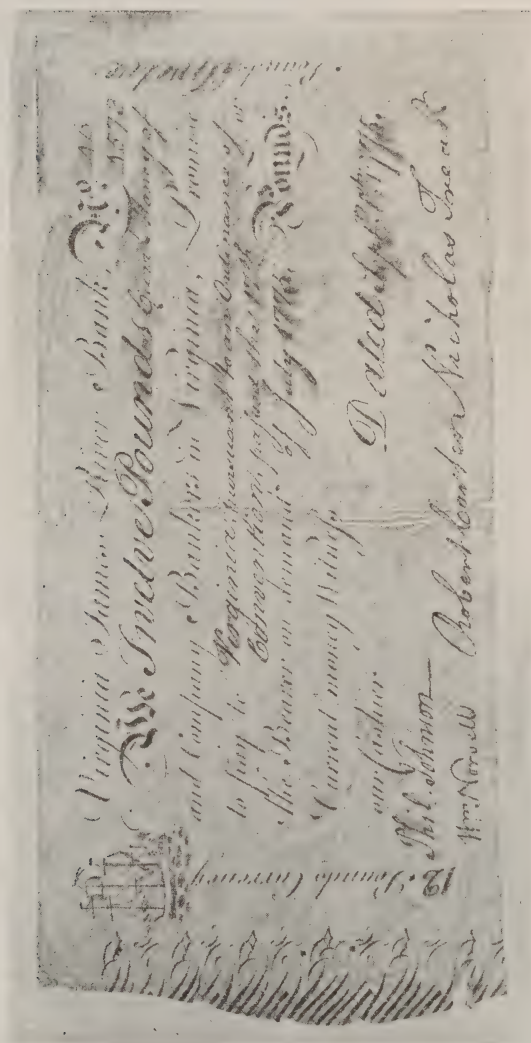 Virginia James River Bank, No
We Twelve Pounds Curr.t Money of
and Company Bankers in Virginia, Promise
to pay to Virginia pursuant to an Ordinance of
Convention passed the 17th or
the Bearer on demand of July 1775. Pounds
Current money Witness
our Cashier Dated Sept. 1st 1775.
Phil. Johnson Robert Carter Nicholas Treasr
Wm. Norvell
12. Pounds Currency